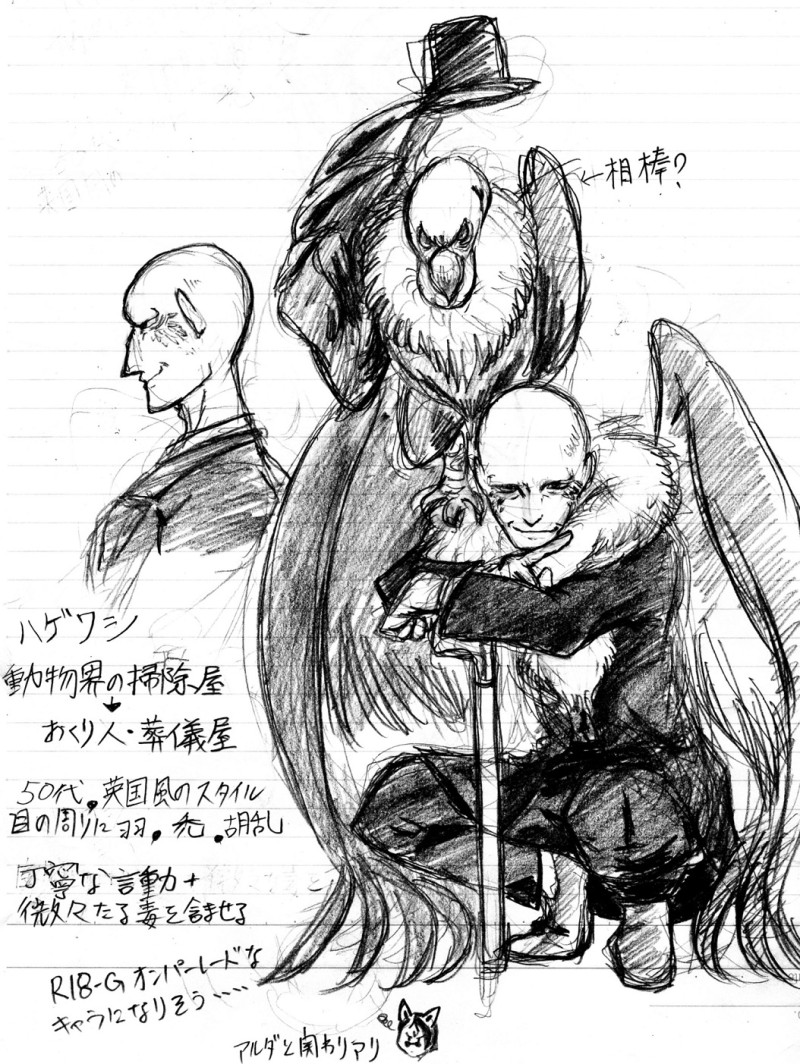 ←相棒?
ハゲワシ
動物界の掃除屋
↓
おくり人・葬儀屋
50代。英国風のスタイル
目の周りに羽。禿。胡乱
丁寧な言動+
微々たる毒を含ませる
R18-Gオンパーレードな
キャラになりそう……
アルダと関わりアリ